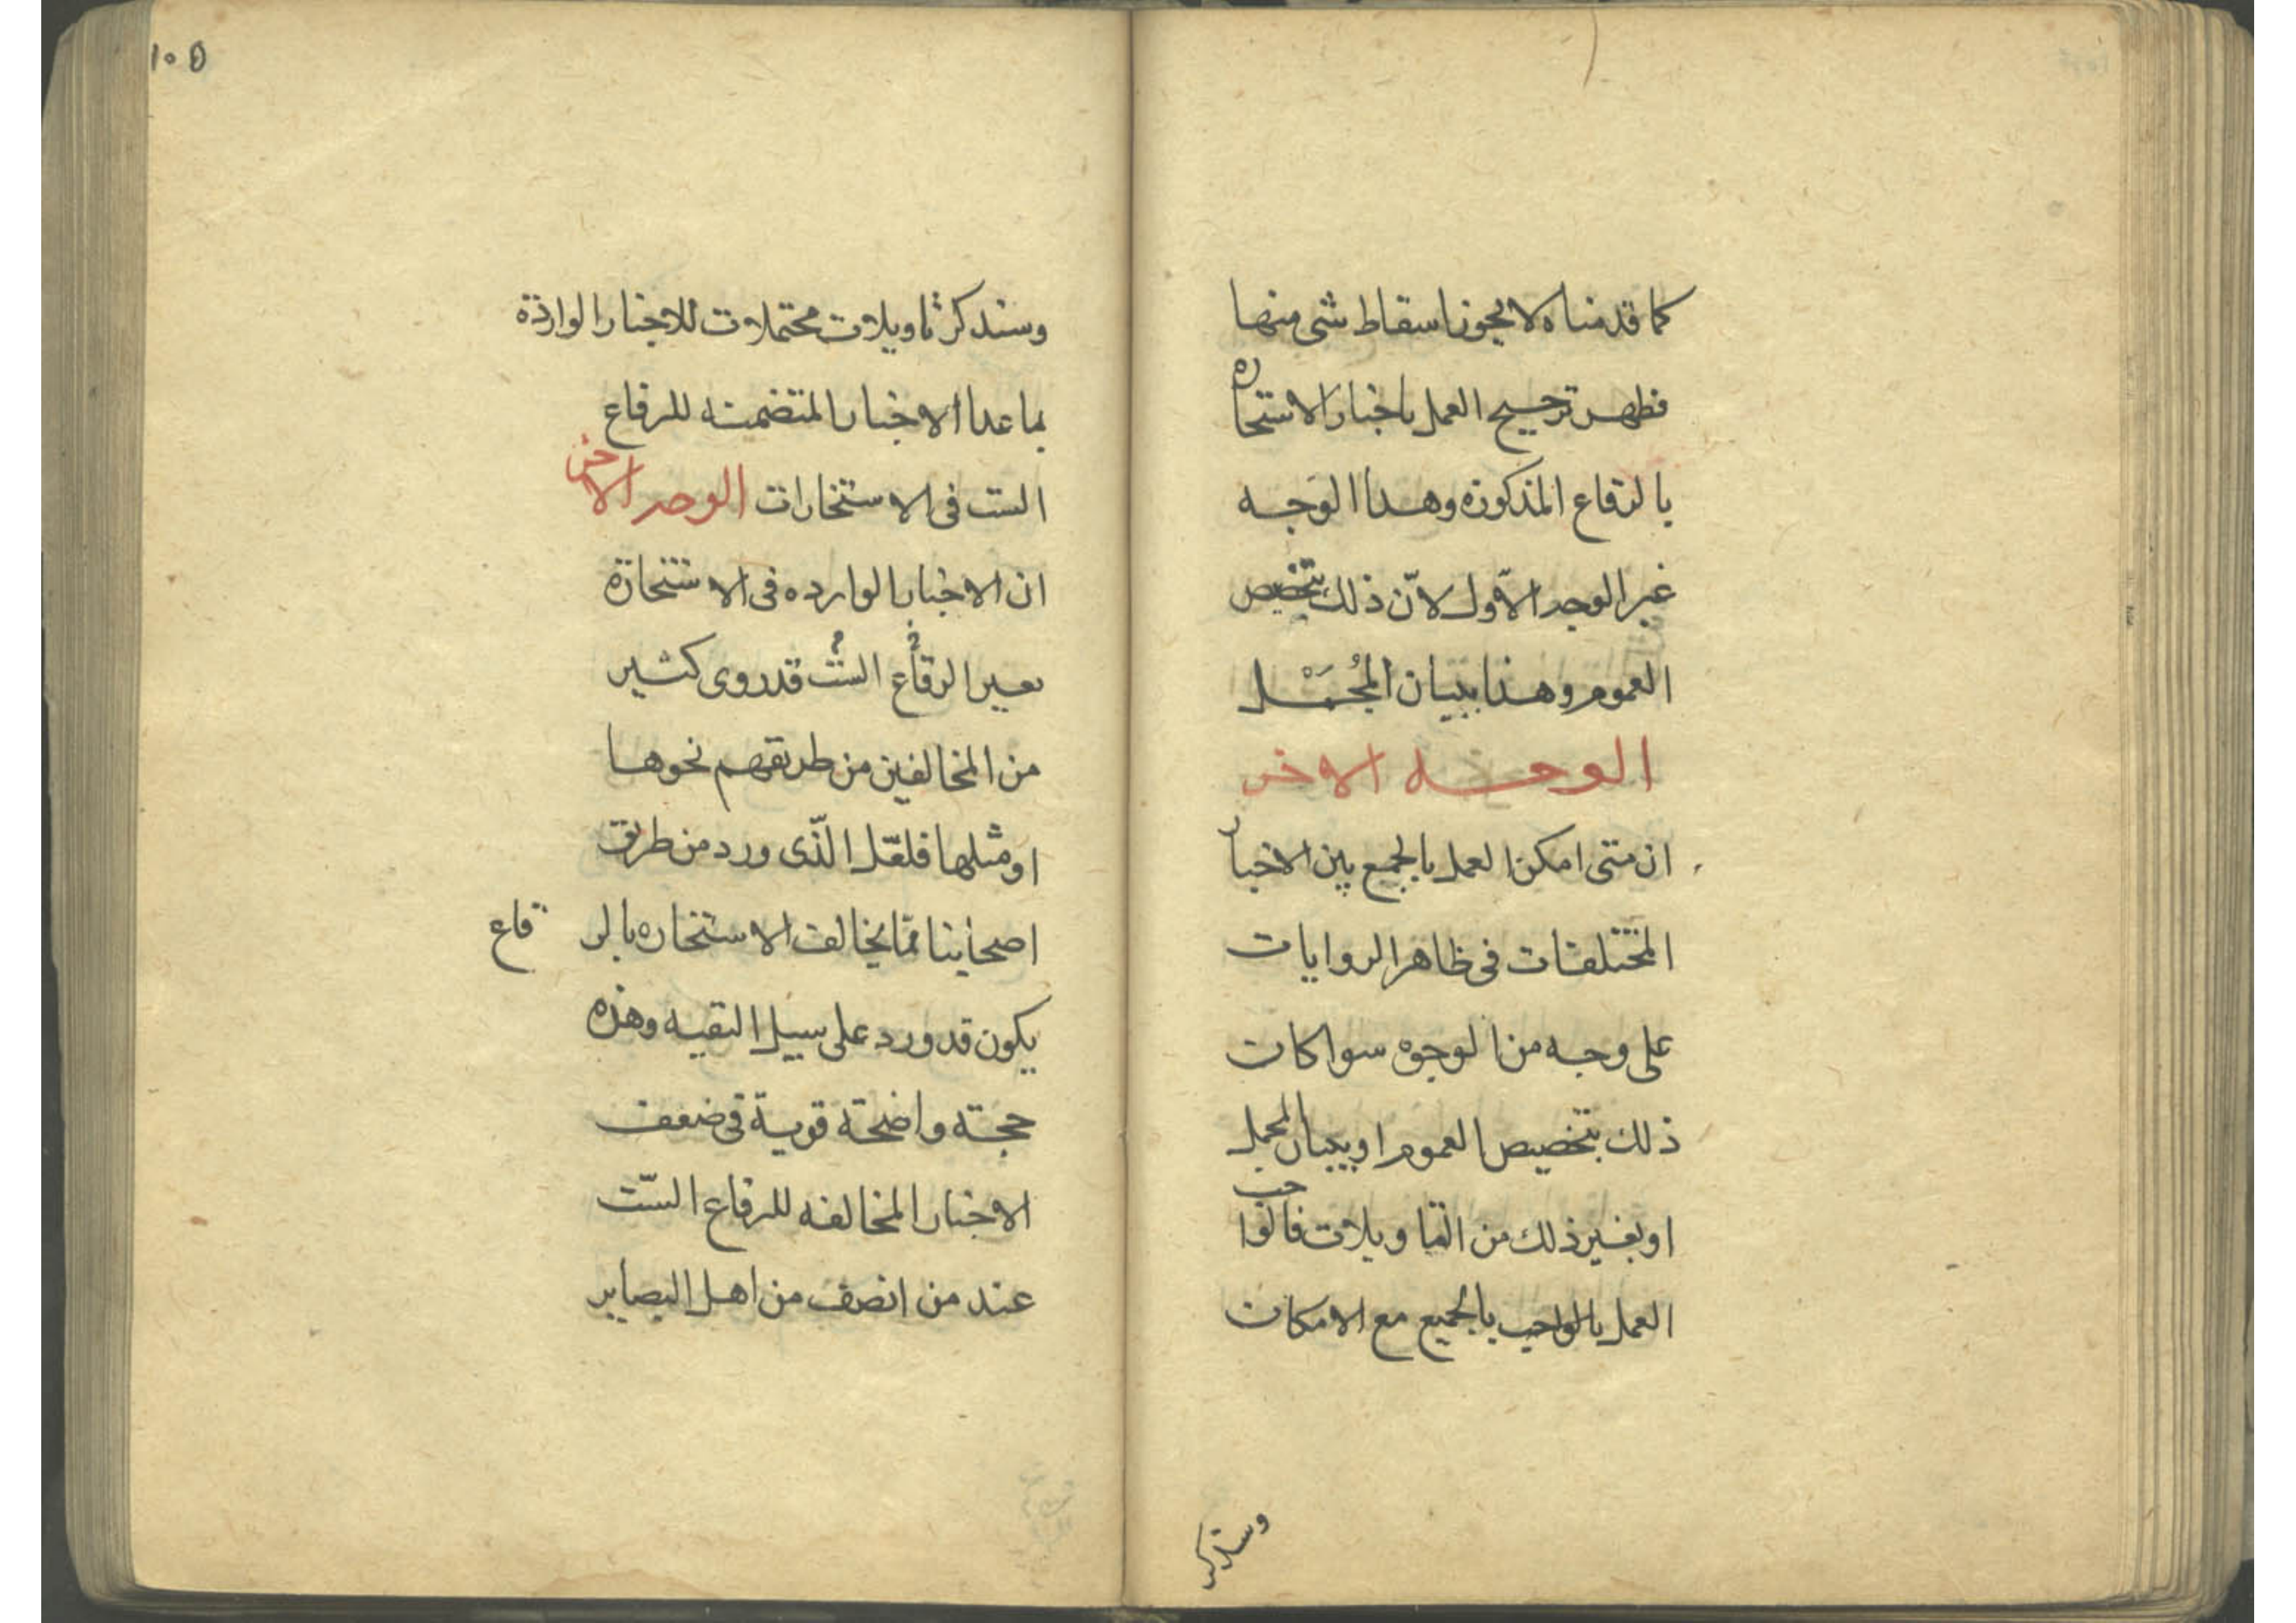 كما قدمناه لا يجوز اسقاط شئ منها
فظهر ترجيح العمل باخبار الاستخاره
بالرقاع المذكوره وهذا الوجه
غير الوجه الاّول لانّ ذلك تخصيص
العموم وهذا بيان المُجَمْل
الوجه الاخر
ان متى امكن العمل بالجمع بين الاخبار
المختلفات في ظاهر الروايات
على وجه من الوجوه سوا كان
ذلك بتخصيص العموم او ببيان المجمل
او بغير ذلك من التاويلات فالواجب
العمل بالواجب بالجميع مع الامكان
وسنذكر
١٠٥
وسنذكر تاويلات محتملات للاخبار الواردة
بما عدا الاخبار المتضمنه للرقاع
الست في الاستخارات الوجه الاخر
ان الاخبار الوارده في الاستخارة
بغير الرقاع الست قد روى كثير
من المخالفين من طريقهم نحوها
او مثلها فلعّل الّذى ورد من طريق
اصحابنا ممّا يخالف الاستخاره بالرقاع
يكون قد ورد على سبيل التقيه وهذه
حجته واضحة قوية في ضعف
الاخبار المخالفه للرقاع السّت
عند من انصف من اهل البصاير